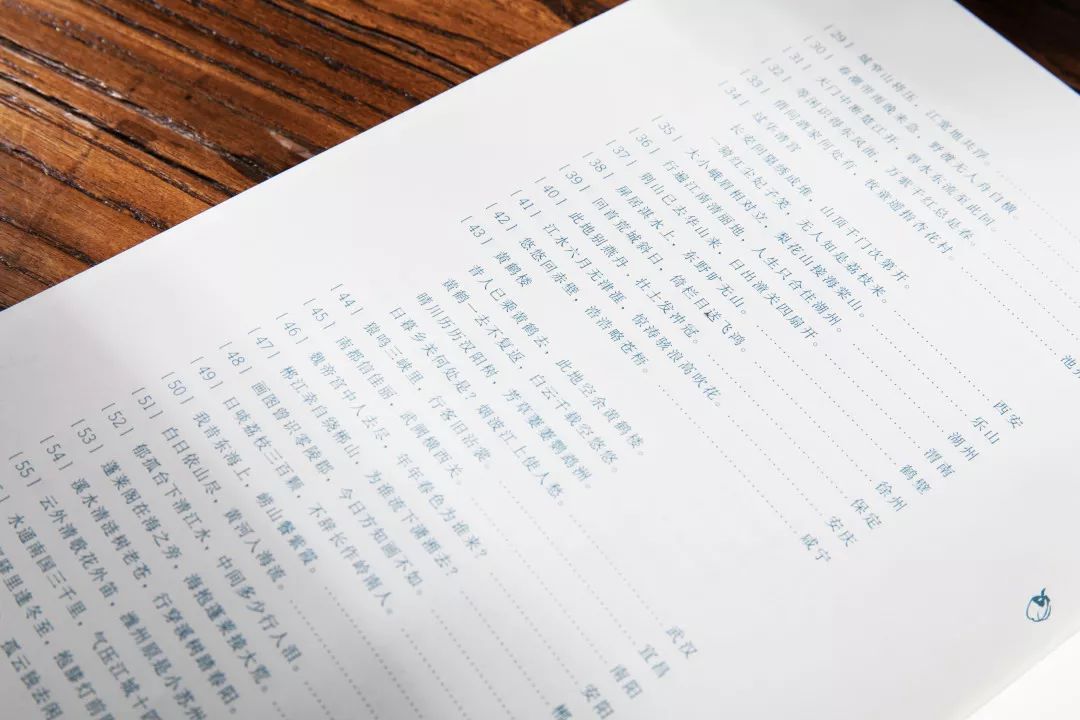 [29] 城窄山将压，江宽地共浮。
[30] 春潮带雨晚来急，野渡无人舟自横。
[31] 天门中断楚江开，碧水东流至此回。
[32] 等闲识得东风面，万紫千红总是春。
[33] 借问酒家何处有，牧童遥指杏花村。 池
[34] 过华清宫
长安回望绣成堆，山顶千门次第开。
一骑红尘妃子笑，无人知是荔枝来。 西安
[35] 大小峨眉相对立，梨花山接海棠山。 乐山
[36] 行遍江南清丽地，人生只合住湖州。 湖州
[37] 荆山已去华山来，日出潼关四扇开。 渭南
[38] 屏居淇水上，东野旷无山。 鹤壁
[39] 回首荒城斜日，倚栏目送飞鸿。 徐州
[40] 此地别燕丹，壮士发冲冠。 保定
[41] 江水六月无津涯，惊涛骇浪高吹花。 安庆
[42] 悠悠回赤壁，浩浩略苍梧。 咸宁
[43] 黄鹤楼
昔人已乘黄鹤去，此地空余黄鹤楼。
黄鹤一去不复返，白云千载空悠悠。
晴川历历汉阳树，芳草萋萋鹦鹉洲。
日暮乡关何处是？烟波江上使人愁。 武汉
[44] 猿鸣三峡里，行客旧沾裳。 宜昌
[45] 南都信佳丽，武阙横西关。 南阳
[46] 魏帝宫中人去尽，年年春色为谁来？ 安阳
[47] 郴江幸自绕郴山，为谁流下潇湘去？ 郴
[48] 画图曾识零陵郡，今日方知画不如。
[49] 日啖荔枝三百颗，不辞长作岭南人。
[50] 我昔东海上，崂山餐紫霞。
[51] 白日依山尽，黄河入海流。
[52] 郁孤台下清江水，中间多少行人泪。
[53] 蓬莱阁在海之旁，海抱蓬莱接大荒。
[54] 溪水清涟树老苍，行穿溪树踏春阳。
[55] 云外清歌花外笛，潍州原是小苏州
水通南国三千里，气压江城十四
里逢冬至，抱膝灯前
孤云独去闲